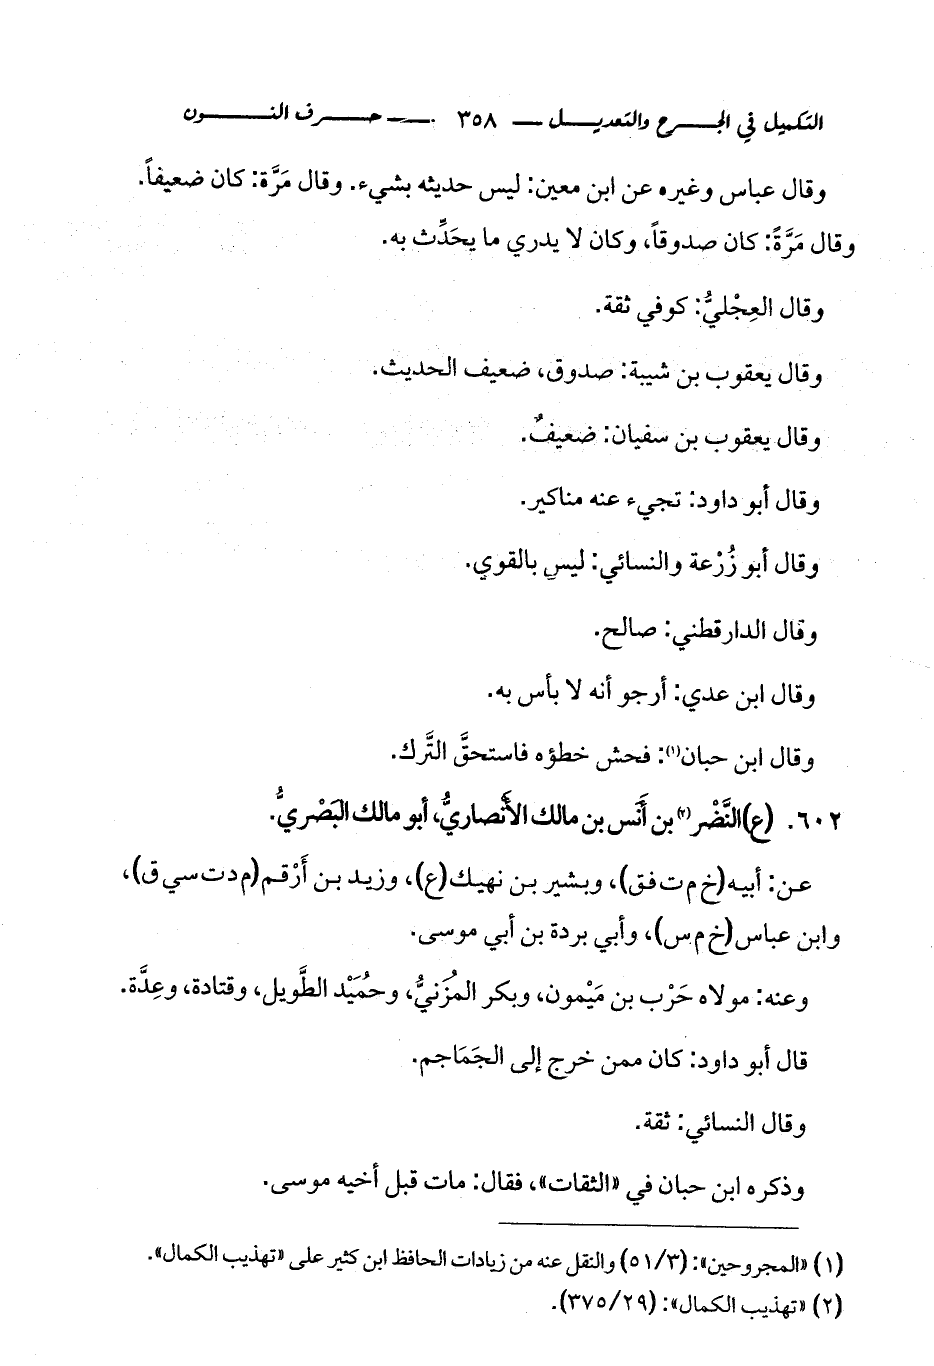 التكميل في الجـــرح والتعديـــل — ٣٥٨ — حـــرف النـــــون
وقال عباس وغيره عن ابن معين: ليس حديثه بشيء. وقال مَرَّة: كان ضعيفاً.
وقال مَرَّةً: كان صدوقاً، وكان لا يدري ما يحَدِّث به.
وقال العِجْليُّ: كوفي ثقة.
وقال يعقوب بن شيبة: صدوق، ضعيف الحديث.
وقال يعقوب بن سفيان: ضعيفٌ.
وقال أبو داود: تجيء عنه مناكير.
وقال أبو زُرْعة والنسائي: ليس بالقوي.
وقال الدارقطني: صالح.
وقال ابن عدي: أرجو أنه لا بأس به.
وقال ابن حبان(١): فحش خطؤه فاستحقَّ التَّرك.
٦٠٢. (ع) النَّضْر(٢) بن أَنَس بن مالك الأنصاريُّ، أبو مالك البَصْريُّ.
عن: أبيه (خ م ت فق)، وبشير بن نهيك (ع)، وزيد بن أَرْقم (م د ت سي ق)،
وابن عباس (خ م س)، وأبي بردة بن أبي موسى.
وعنه: مولاه حَرْب بن مَيْمون، وبكر المُزَنيُّ، وحُمَيْد الطَّويل، وقتادة، وعِدَّة.
قال أبو داود: كان ممن خرج إلى الجَمَاجم.
وقال النسائي: ثقة.
وذكره ابن حبان في «الثقات»، فقال: مات قبل أخيه موسى.
(١) «المجروحين»: (٥١/٣) والنقل عنه من زيادات الحافظ ابن كثير على «تهذيب الكمال».
(٢) «تهذيب الكمال»: (٣٧٥/٢٩).